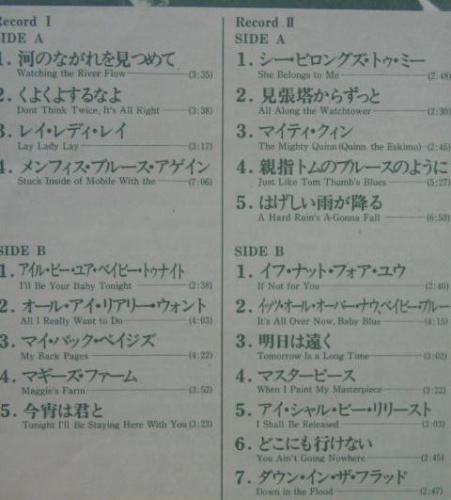 Record I
SIDE A
1. 河のながれを見つめて
Watching the River Flow (3:35)
2. くよくよするなよ
Dont Think Twice, It's All Right (3:38)
3. レイ・レディ・レイ
Lay Lady Lay (3:17)
4. メンフィス・ブルース・アゲイン
Stuck Inside of Mobile With the (7:06)
SIDE B
1. アイル・ビー・ユア・ベイビー・トゥナイト
I'll Be Your Baby Tonight (2:38)
2. オール・アイ・リアリー・ウォント
All I Really Want to Do (4:03)
3. マイ・バック・ペイジズ
My Back Pages (4:22)
4. マギーズ・ファーム
Maggie's Farm (3:52)
5. 今宵は君と
Tonight I'll Be Staying Here With You (3:23)
Record II
SIDE A
1. シー・ビロングズ・トゥ・ミー
She Belongs to Me (2:48)
2. 見張塔からずっと
All Along the Watchtower (2:30)
3. マイティ・クィン
The Mighty Quinn (Quinn, the Eskimo) (2:45)
4. 親指トムのブルースのように
Just Like Tom Thumb's Blues (5:27)
5. はげしい雨が降る
A Hard Rain's A-Gonna Fall (6:50)
SIDE B
1. イフ・ナット・フォア・ユウ
If Not for You (2:40)
2. イッツ・オール・オーバー・ナウ、ベイビー・ブルー
It's All Over Now, Baby Blue (4:15)
3. 明日は遠く
Tomorrow Is a Long Time (3:02)
4. マスターピース
When I Paint My Masterpiece (3:22)
5. アイ・シャル・ビー・リリースト
I Shall Be Released (3:03)
6. どこにも行けない
You Ain't Going Nowhere (2:45)
7. ダウン・イン・ザ・フラッド
Down in the Flood (2:47)